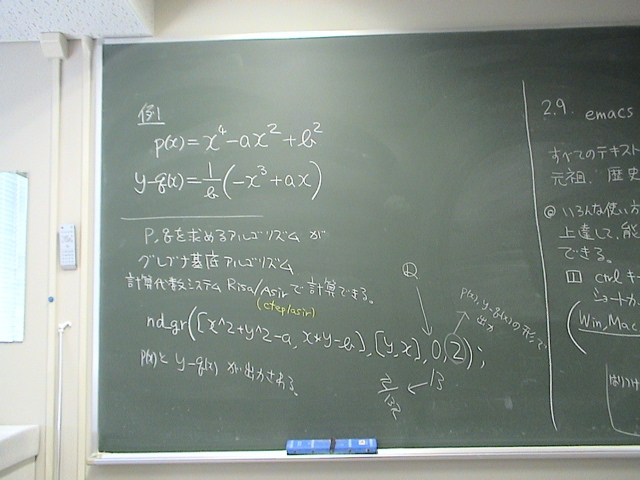 例1
p(x)=x^4-ax^2+b^2
y-q(x)=1/b(-x^3+ax)
P, qを求めるアルゴリズム が
グレブナ基底アルゴリズム
計算代数システム Risa/Asir で計算できる。
(ctep/asir)
nd_gr([x^2+y^2-a, x*y-b],[y,x],0,2);
p(x)と y-q(x) が出力される。
Q
p(x), y-q(x) の形で
出力
2.9. emacs
すべてのテキスト
元祖. 歴史
◎ いろんな使い方
上達して、能
できる。
1 ctrl キ
ショートカ
(Win, Mac